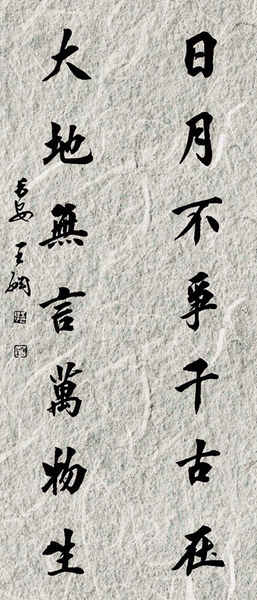 日月不爭千古在
大地無言萬物生
長安 王